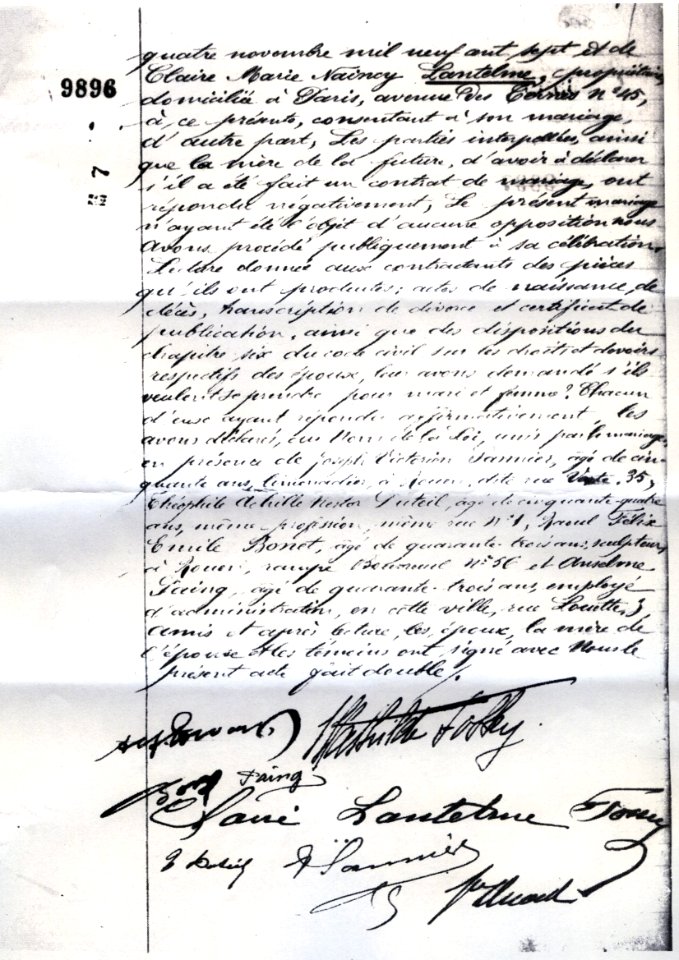 9896
quatre novembre mil neuf cent sept et de
Claire Marie Nancy Lantelme, propriétaire,
domiciliée à Paris, avenue des Ternes n° 45,
à ce présente, consentant à son mariage,
d'autre part, Les parties interpellées, ainsi
que la mère de la future, d'avoir à déclarer
s'il a été fait un contrat de mariage, ont
répondu négativement, Le présent mariage
n'ayant été l'objet d'aucune opposition nous
avons procédé publiquement à sa célébration.
Lecture donnée aux contractants des pièces
qu'ils ont produites; actes de naissance, de
décès, transcription de divorce et certificat de
publication, ainsi que des dispositions du
chapitre six du code civil sur les droits et devoirs
respectifs des époux, leur avons demandé s'ils
veulent se prendre pour mari et femme? Chacun
d'eux ayant répondu affirmativement, les
avons déclarés, au Nom de la Loi, unis par le mariage,
en présence de Joseph Victorien Sannier, âgé de cin-
quante ans, limonadier, à Rouen, dite rue Verte, 35,
Théophile Achille Nestor Duteil, âgé de cinquante-quatre
ans, même profession, même rue N° 1, Raoul Félix
Emile Bonet, âgé de quarante-trois ans, sculpteur,
à Rouen, rampe N° 56 et Anselme
Faing, âgé de quarante-trois ans, employé
d'administration, en cette ville, rue
amis et après lecture, les époux, la mère de
l'épouse et les témoins ont signé avec Nous le
présent acte fait double.
Mathilde Fossey
Faing
Lantelme Fossey
Sannier